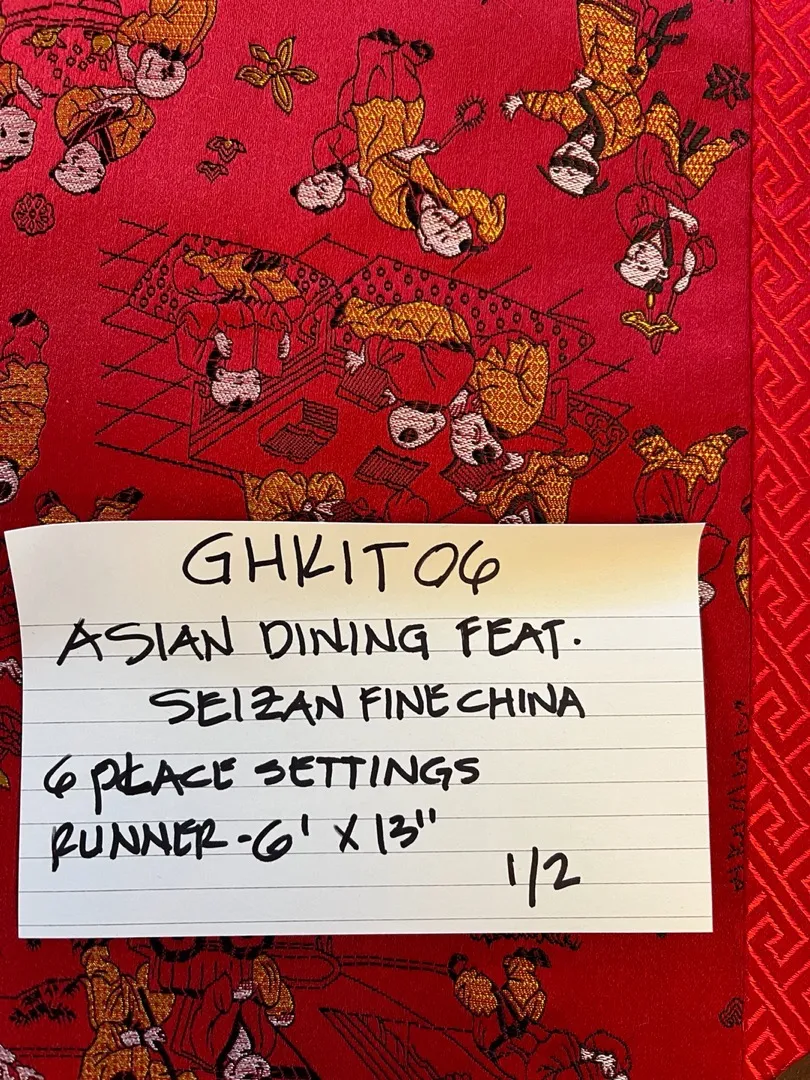 GHKIT06
ASIAN DINING FEAT.
SEIZAN FINE CHINA
6 PLACE SETTINGS
RUNNER - 6' X 13"
1/2